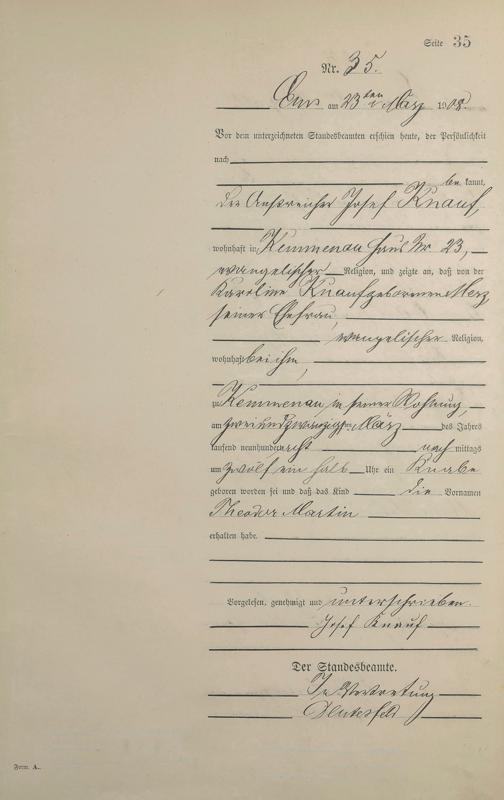 Seite 35
Nr. 35.
Ems am 23ten März 1908.
Vor dem unterzeichneten Standesbeamten erschien heute, der Persönlichkeit
nach
be kannt,
der Anstreicher Josef Knauf,
wohnhaft in Kemmenau Haus Nr. 23,
evangelischer Religion, und zeigte an, daß von der
Karoline Knauf geborenen Merz,
seiner Ehefrau,
evangelischer Religion,
wohnhaft bei ihm,
zu Kemmenau, in seiner Wohnung,
am zweiundzwanzigsten März des Jahres
tausend neunhundert acht nach mittags
um zwölf ein halb Uhr ein Knabe
geboren worden sei und daß das Kind die Vornamen
Theodor Martin
erhalten habe.
Vorgelesen, genehmigt und unterschrieben.
Josef Knauf
Der Standesbeamte.
In Vertretung
Form. A.